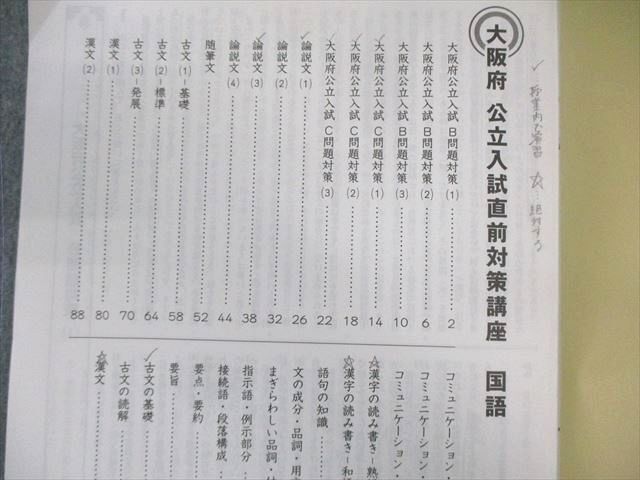 大阪府 公立入試直前対策講座 国語
✓ 授業内で演習 ☆…絶対する
大阪府公立入試 B問題対策 (1) 2
大阪府公立入試 B問題対策 (2) 6
大阪府公立入試 B問題対策 (3) 10
✓大阪府公立入試 C問題対策 (1) 14
✓大阪府公立入試 C問題対策 (2) 18
✓大阪府公立入試 C問題対策 (3) 22
✓論説文 (1) 26
論説文 (2) 32
✓論説文 (3) 38
論説文 (4) 44
随筆文 52
古文 (1)-基礎 58
古文 (2)-標準 64
古文 (3)-発展 70
漢文 (1) 80
漢文 (2) 88
コミュニケーション・
コミュニケーション・
コミュニケーション・
☆漢字の読み書き-熟
☆漢字の読み書き-和
語句の知識
文の成分・品詞・用
まぎらわしい品詞・
指示語・例示部分
接続語・段落構成
要点・要約
要旨
✓古文の基礎
古文の読解
☆漢文